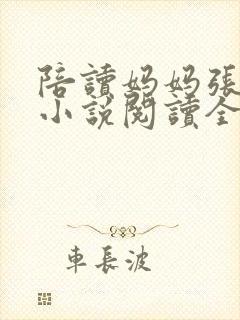 陪讀妈妈張
小說閱讀全
車長波